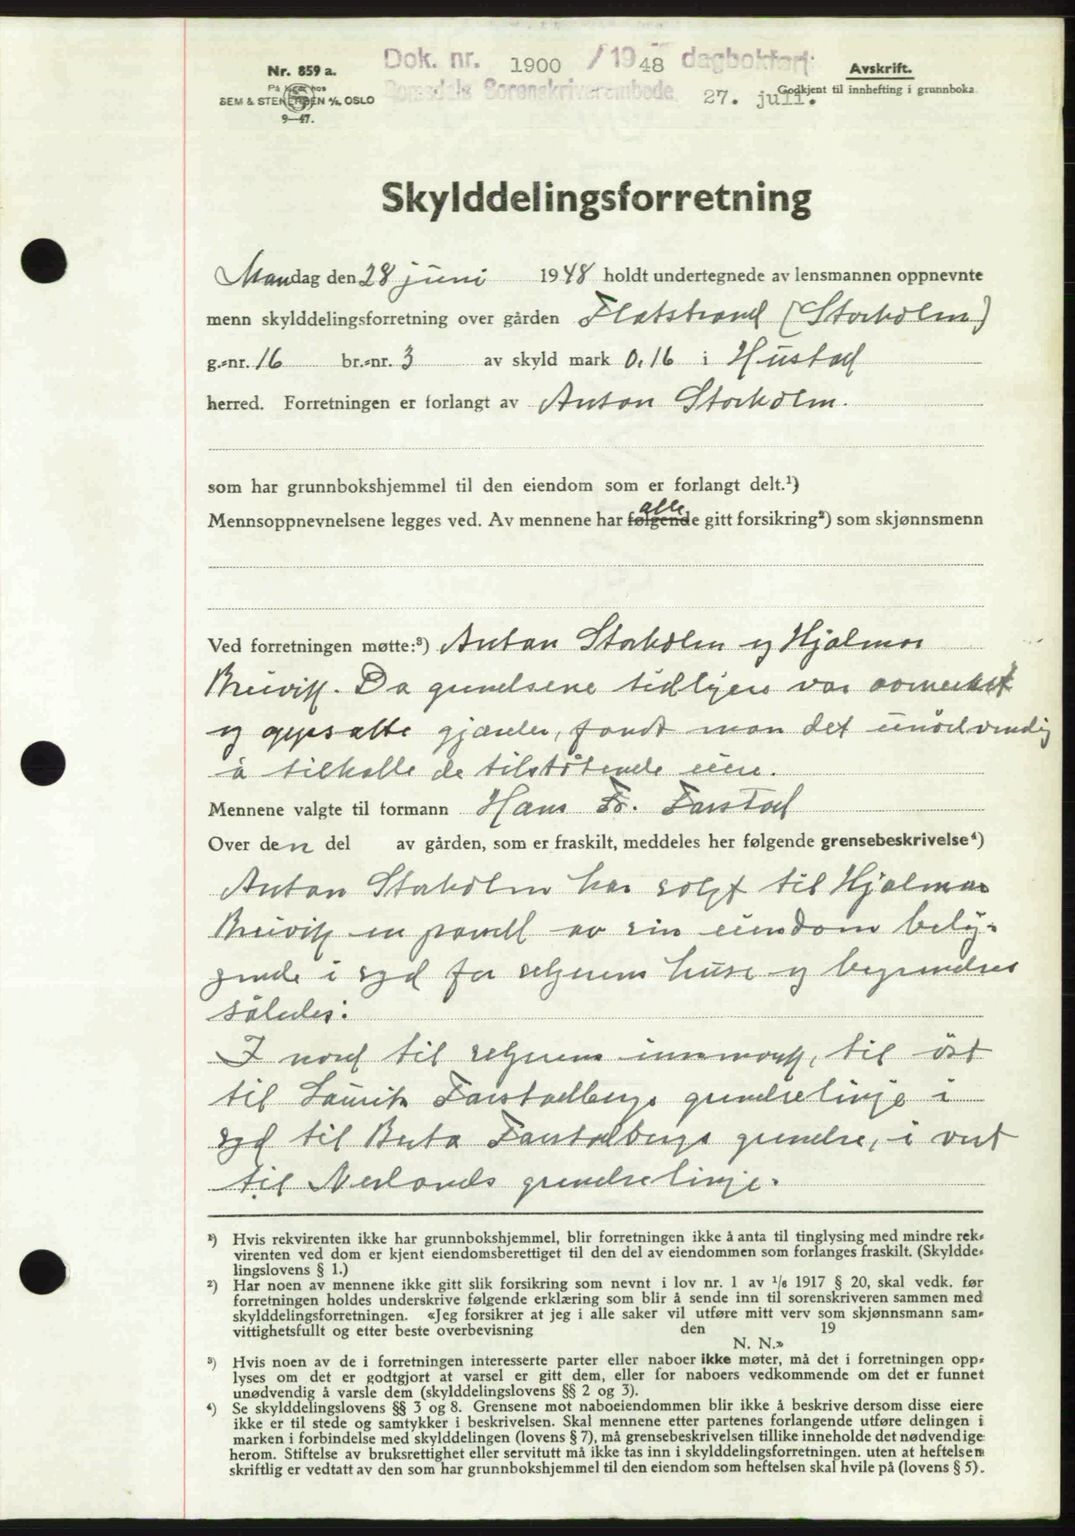 Dok. nr. 1900 / 1948 dagbokført
Romsdals Sorenskriverembede 27. juli.
Nr. 859 a.
På lager hos
SEM & STENERSEN A/S, OSLO
9—47.
Avskrift.
Godkjent til innhefting i grunnboka
Skylddelingsforretning
Mandag den 28 juni 1948 holdt undertegnede av lensmannen oppnevnte
menn skylddelingsforretning over gården Flatstrand (Storholm)
g.-nr. 16 br.-nr. 3 av skyld mark 0,16 i Hustad
herred. Forretningen er forlangt av Anton Storholm.
som har grunnbokshjemmel til den eiendom som er forlangt delt.¹)
alle
Mennsoppnevnelsene legges ved. Av mennene har følgende gitt forsikring²) som skjønnsmenn
Ved forretningen møtte:³) Anton Storholm og Hjalmar
Breivik. Da grendsene tidligere var
og oppsatte gjærder, fandt man det unødvendig
å tilkalle de tilstøtende eiere.
Mennene valgte til formann Hans Fr. Farstad
Over den del av gården, som er fraskilt, meddeles her følgende grensebeskrivelse⁴)
Anton Storholm har solgt til Hjalmar
Breivik en parsell av sin eiendom belig-
gende i syd for selgerens huse og begrendses
således:
I nord til selgerens innmark, til öst
til Laurits Farstadbergs grendselinje i
syd til Berta Farstadbergs grendse, i vest
til Nerlands grendselinje.
¹) Hvis rekvirenten ikke har grunnbokshjemmel, blir forretningen ikke å anta til tinglysing med mindre rek-
virenten ved dom er kjent eiendomsberettiget til den del av eiendommen som forlanges fraskilt. (Skyldde-
lingslovens § 1.)
²) Har noen av mennene ikke gitt slik forsikring som nevnt i lov nr. 1 av 1/6 1917 § 20, skal vedk. før
forretningen holdes underskrive følgende erklæring som blir å sende inn til sorenskriveren sammen med
skylddelingsforretningen. «Jeg forsikrer at jeg i alle saker vil utføre mitt verv som skjønnsmann sam-
vittighetsfullt og etter beste overbevisning den 19
N. N.»
³) Hvis noen av de i forretningen interesserte parter eller naboer ikke møter, må det i forretningen opp-
lyses om det er godtgjort at varsel er gitt dem, eller for naboers vedkommende om det er funnet
unødvendig å varsle dem (skylddelingslovens §§ 2 og 3).
⁴) Se skylddelingslovens §§ 3 og 8. Grensene mot naboeiendommen blir ikke å beskrive dersom disse eiere
ikke er til stede og samtykker i beskrivelsen. Skal mennene etter partenes forlangende utføre delingen i
marken i forbindelse med skylddelingen (lovens § 7), må grensebeskrivelsen tillike inneholde det nødvendige
herom. Stiftelse av bruksrettighet eller servitutt må ikke tas inn i skylddelingsforretningen, uten at heftelsen
skriftlig er vedtatt av den som har grunnbokshjemmel til den eiendom som heftelsen skal hvile på (lovens § 5).